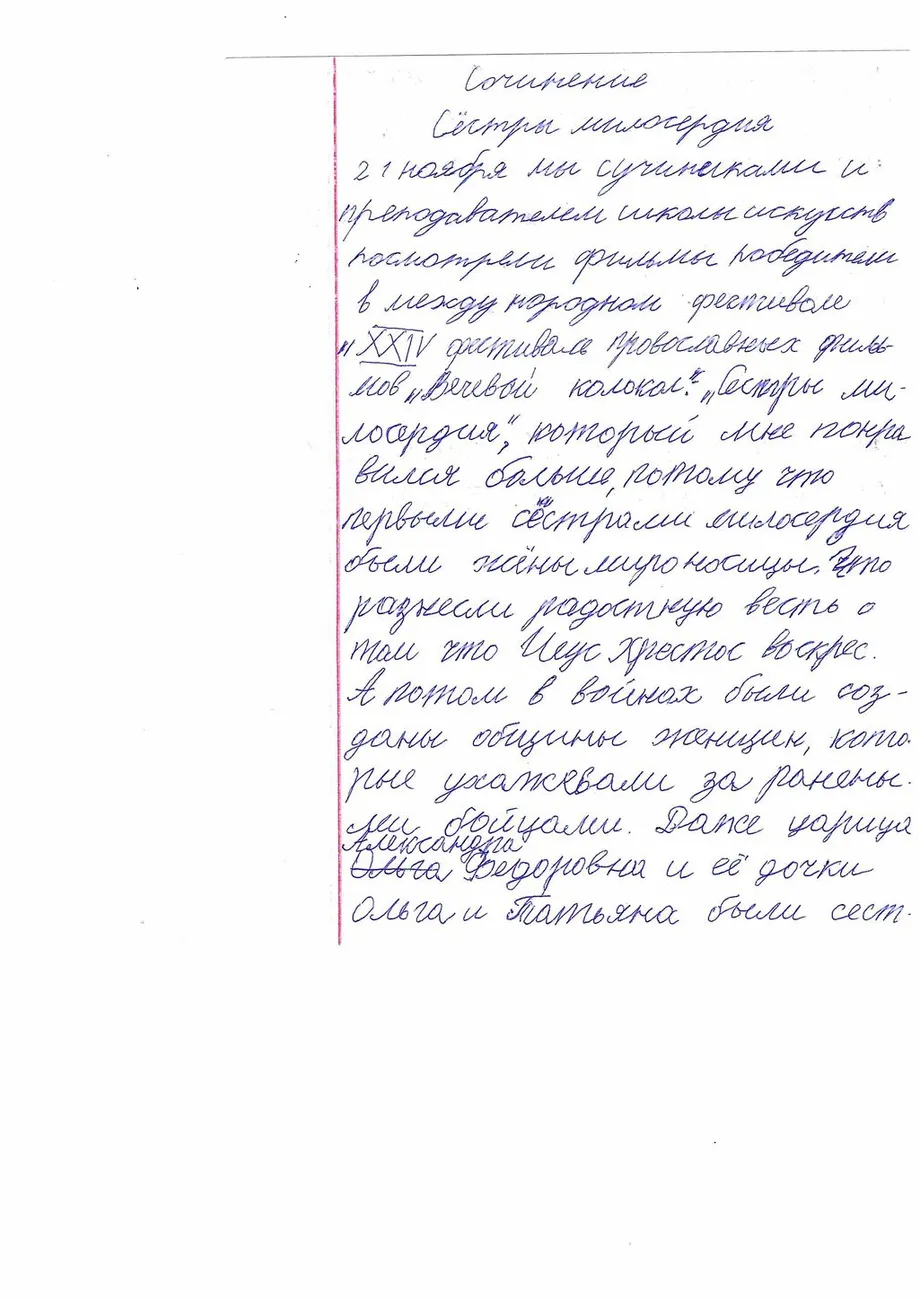 Сочинение
Сёстры милосердия
21 ноября мы сучениками и
преподавателем школы искусств
посмотрели фильмы победители
в между народном фестивале
"XXIV фестиваль провославных филь-
мов "Вечевой колокол". "Сестры ми-
лосердия", который мне понра
вился больше, потому что
первыми сёстрами милосердия
были жёны мироносицы. Что
разнесли радостную весть о
том что Исус Христос воскрес.
А потом в войнах были соз-
даны общины женщин, кото-
рые ухаживали за ранены-
ми бойцами. Даже царица
Александра
Ольга Федоровна и её дочки
Ольга и Татьяна были сест-